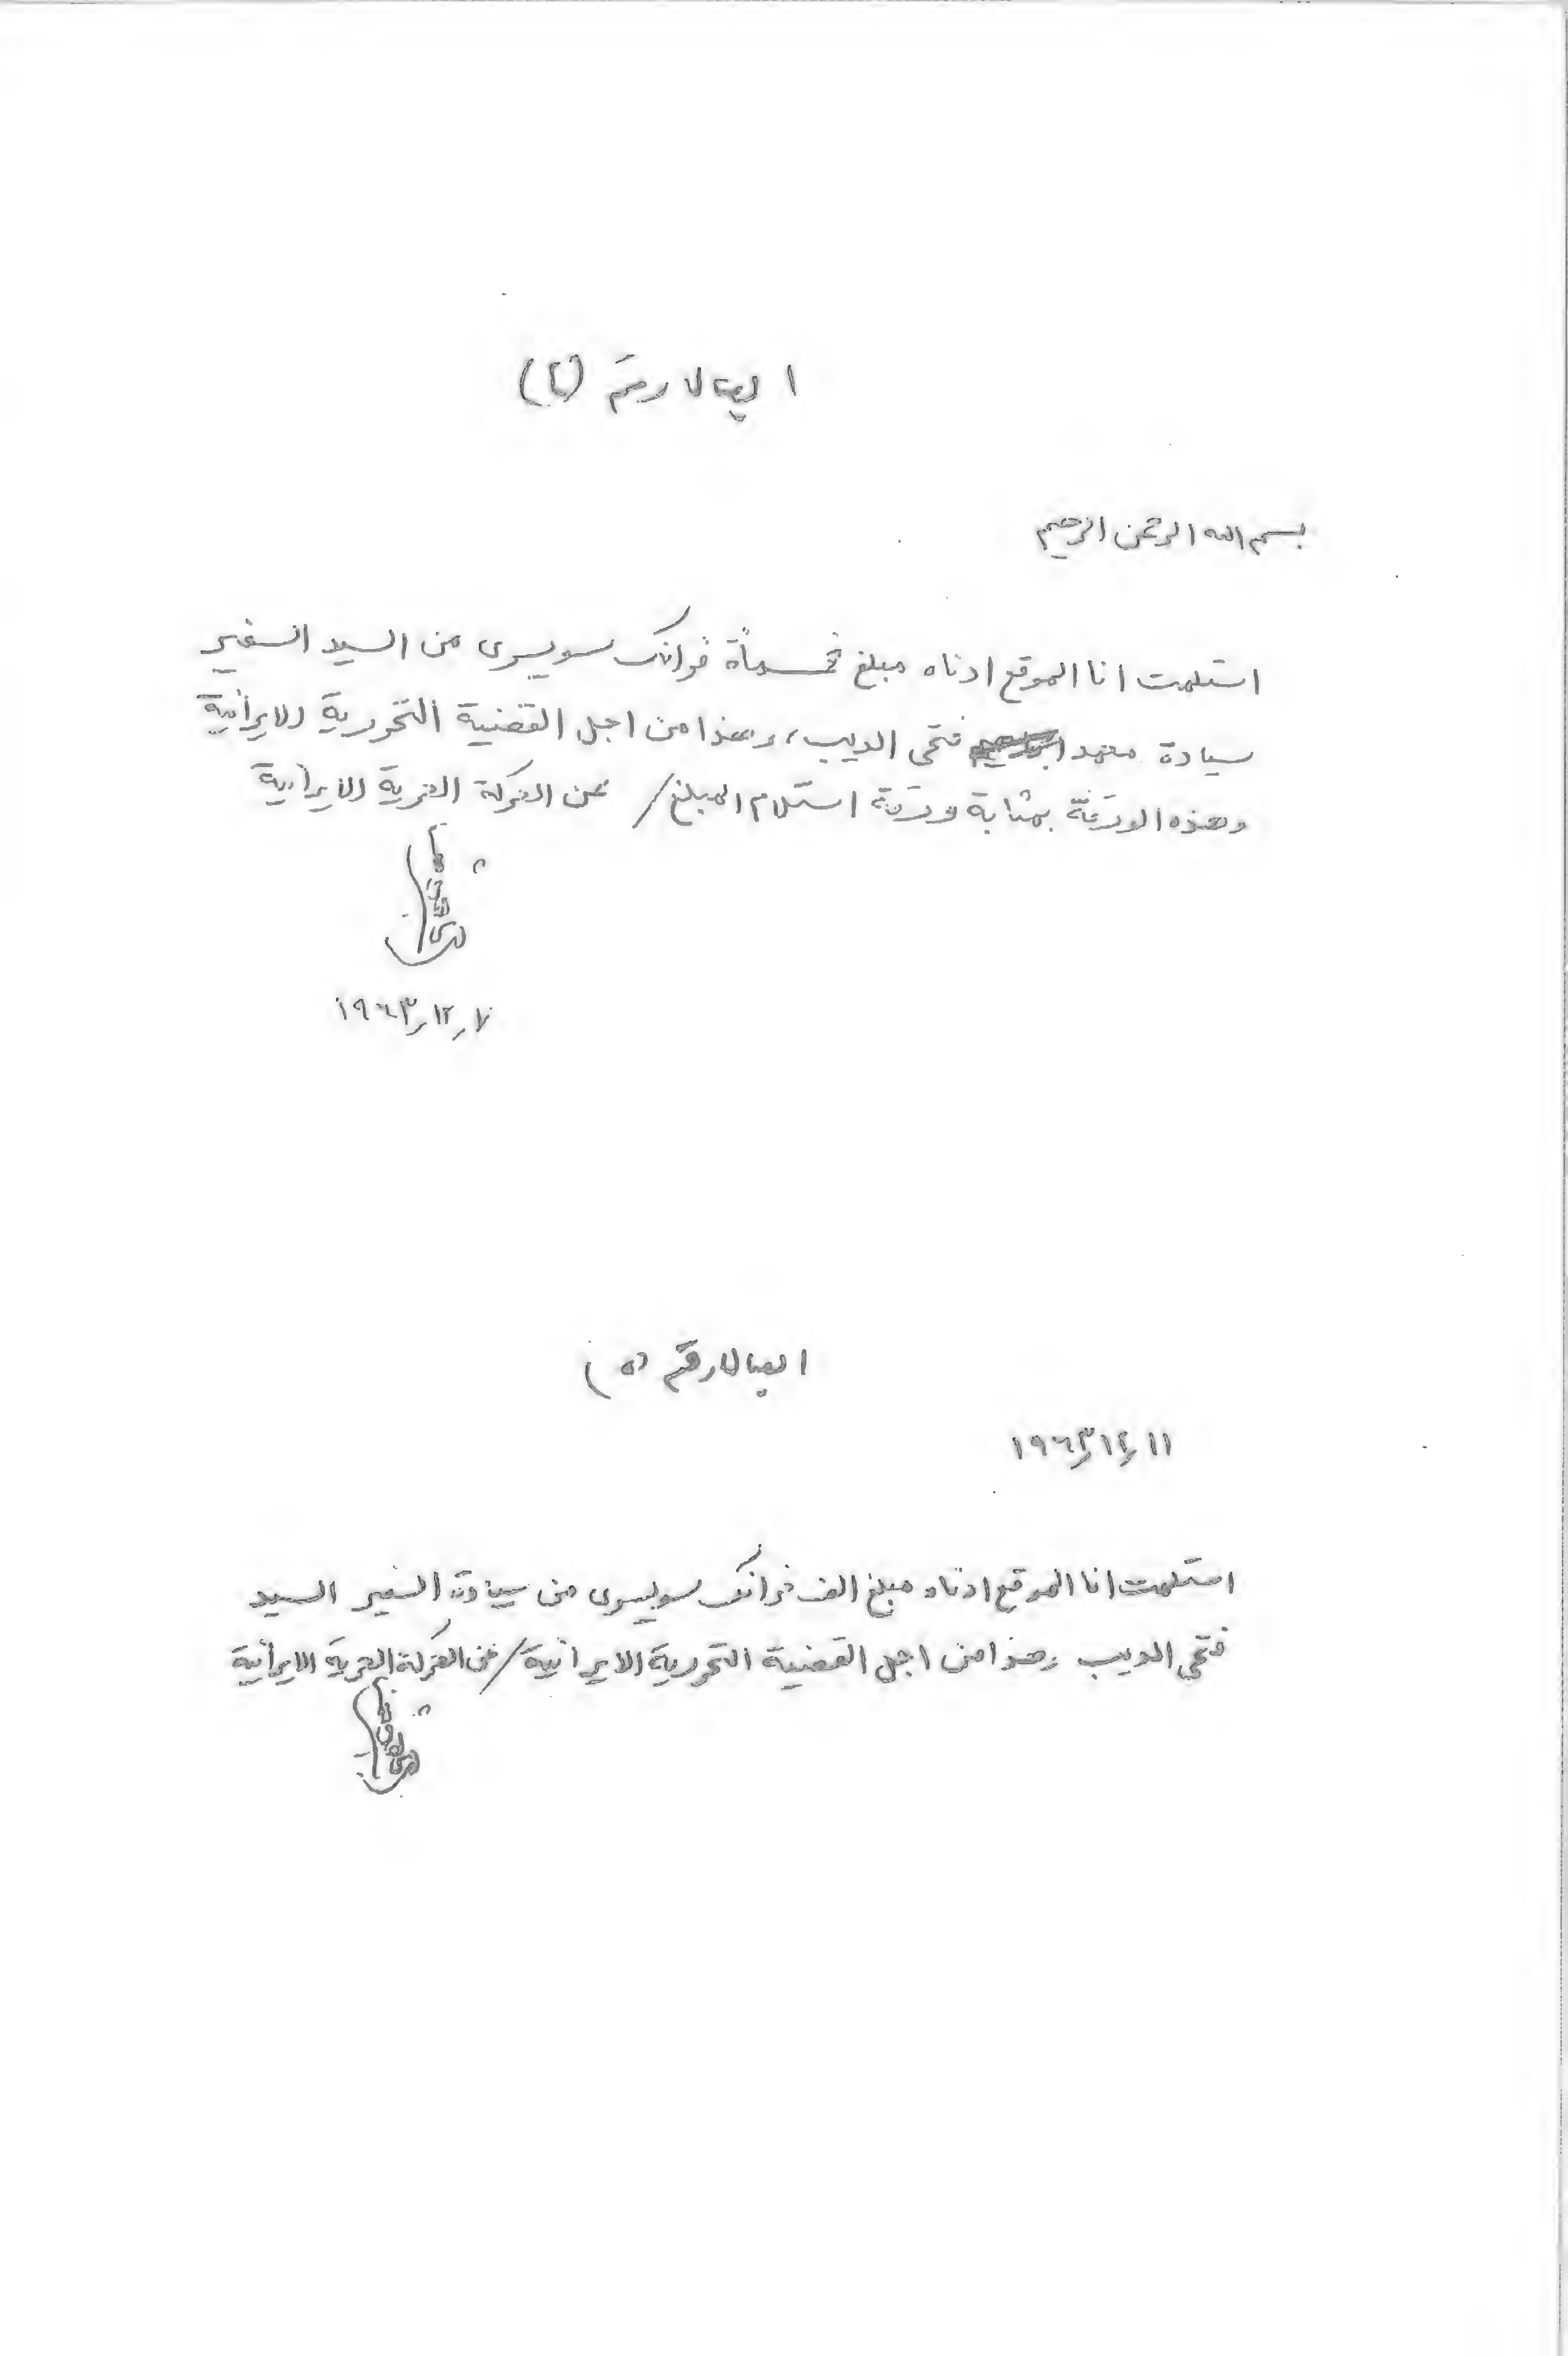 ايصال رقم (٤)
بسم الله الرحمن الرحيم
استلمت انا الموقع ادناه مبلغ خمسمأة فرانك سويسرى من السيد السفير
سيادة محمد فتحى الديب، وهذا من اجل القضية التحررية الايرانية
وهذه الورقة بمثابة ورقة استلام المبلغ / عن الحركة الحرية الايرانية
١٩٦٣ر١٢ر٧
ايصال رقم (٥)
١٩٦٣ر١٢ر١١
استلمت انا الموقع ادناه مبلغ الف فرانك سويسرى من سيادة السفير السيد
فتحى الديب وهذا من اجل القضية التحررية الايرانية / عن الحركة الحرية الايرانية